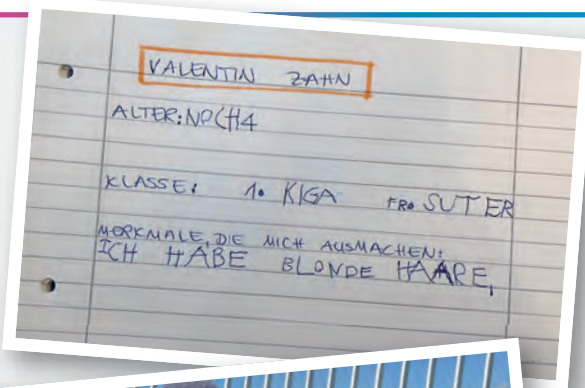 VALENTIN ZAHN
ALTER: NOCH 4
KLASSE: 1. KIGA FR. SUTER
MERKMALE, DIE MICH AUSMACHEN:
ICH HABE BLONDE HAARE,